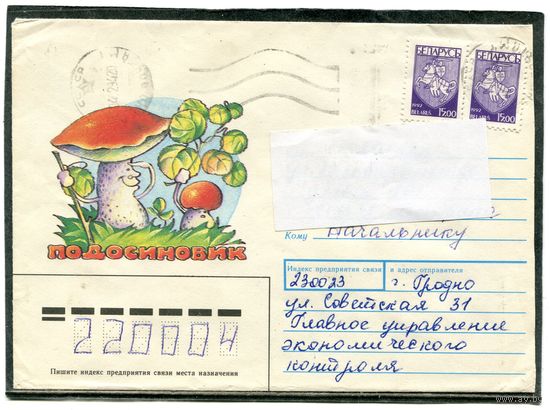 БЕЛАРУСЬ БЕЛАРУСЬ
1992 BELARUS 15.00 1992 BELARUS 15.00
ПОДОСИНОВИК
Кому Начальнику
Индекс предприятия связи и адрес отправителя
230023 г. Гродно
ул. Советская 31
Главное управление
экономического
контроля
220004
Пишите индекс предприятия связи места назначения